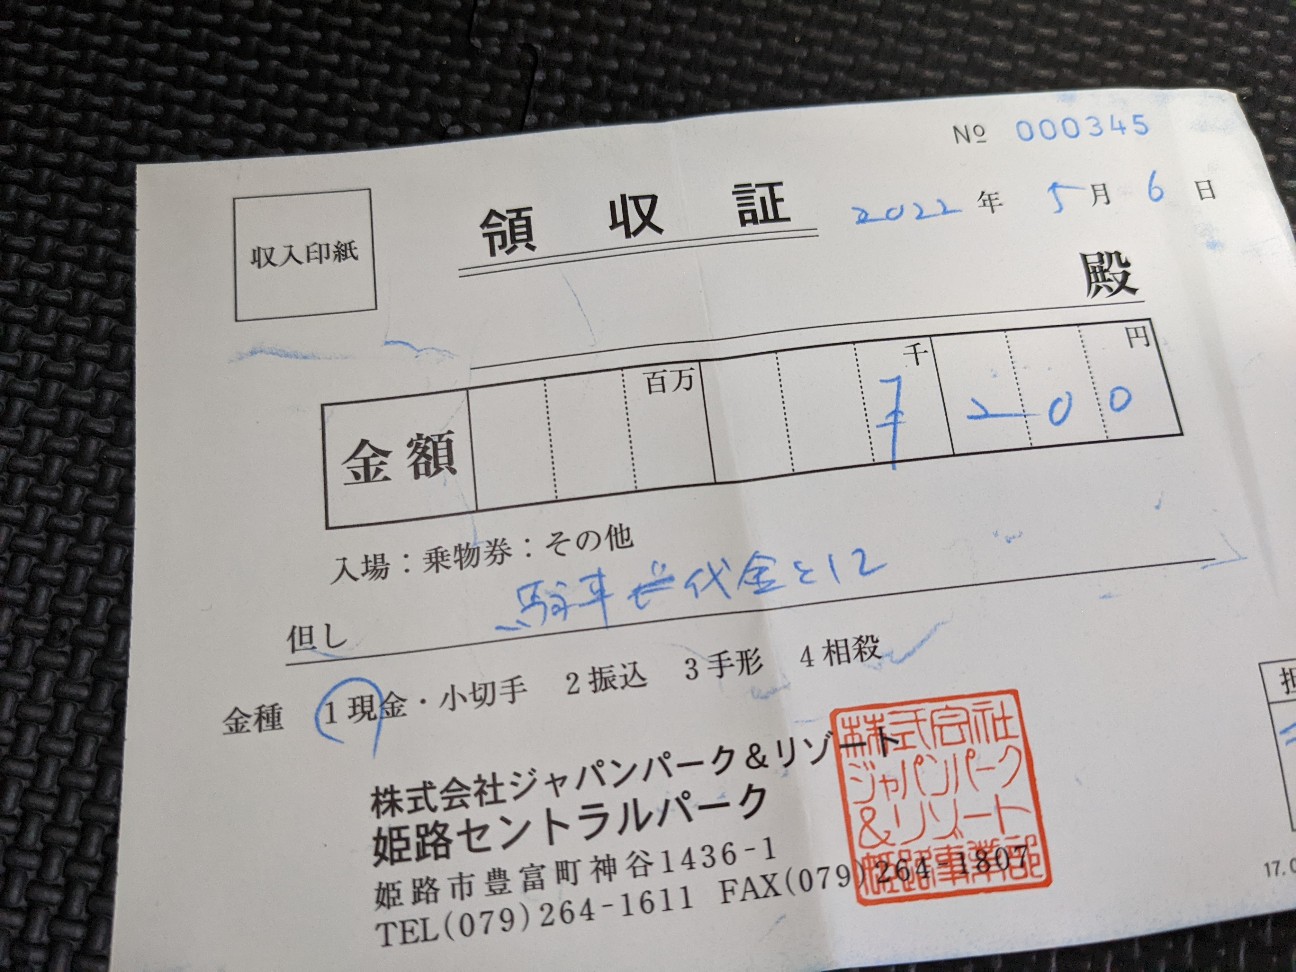 No 000345
領収証
2022年 5月 6日
収入印紙
殿
金額 百万 千 円
¥ 200
入場：乗物券：その他
但し 駐車代金とし
金種 1現金・小切手 2振込 3手形 4相殺
株式会社ジャパンパーク＆リゾート
姫路セントラルパーク
姫路市豊富町神谷1436-1
TEL(079)264-1611 FAX(079)264-1807
株式会社
ジャパンパーク
＆リゾート
姫路事業部
担
17.0